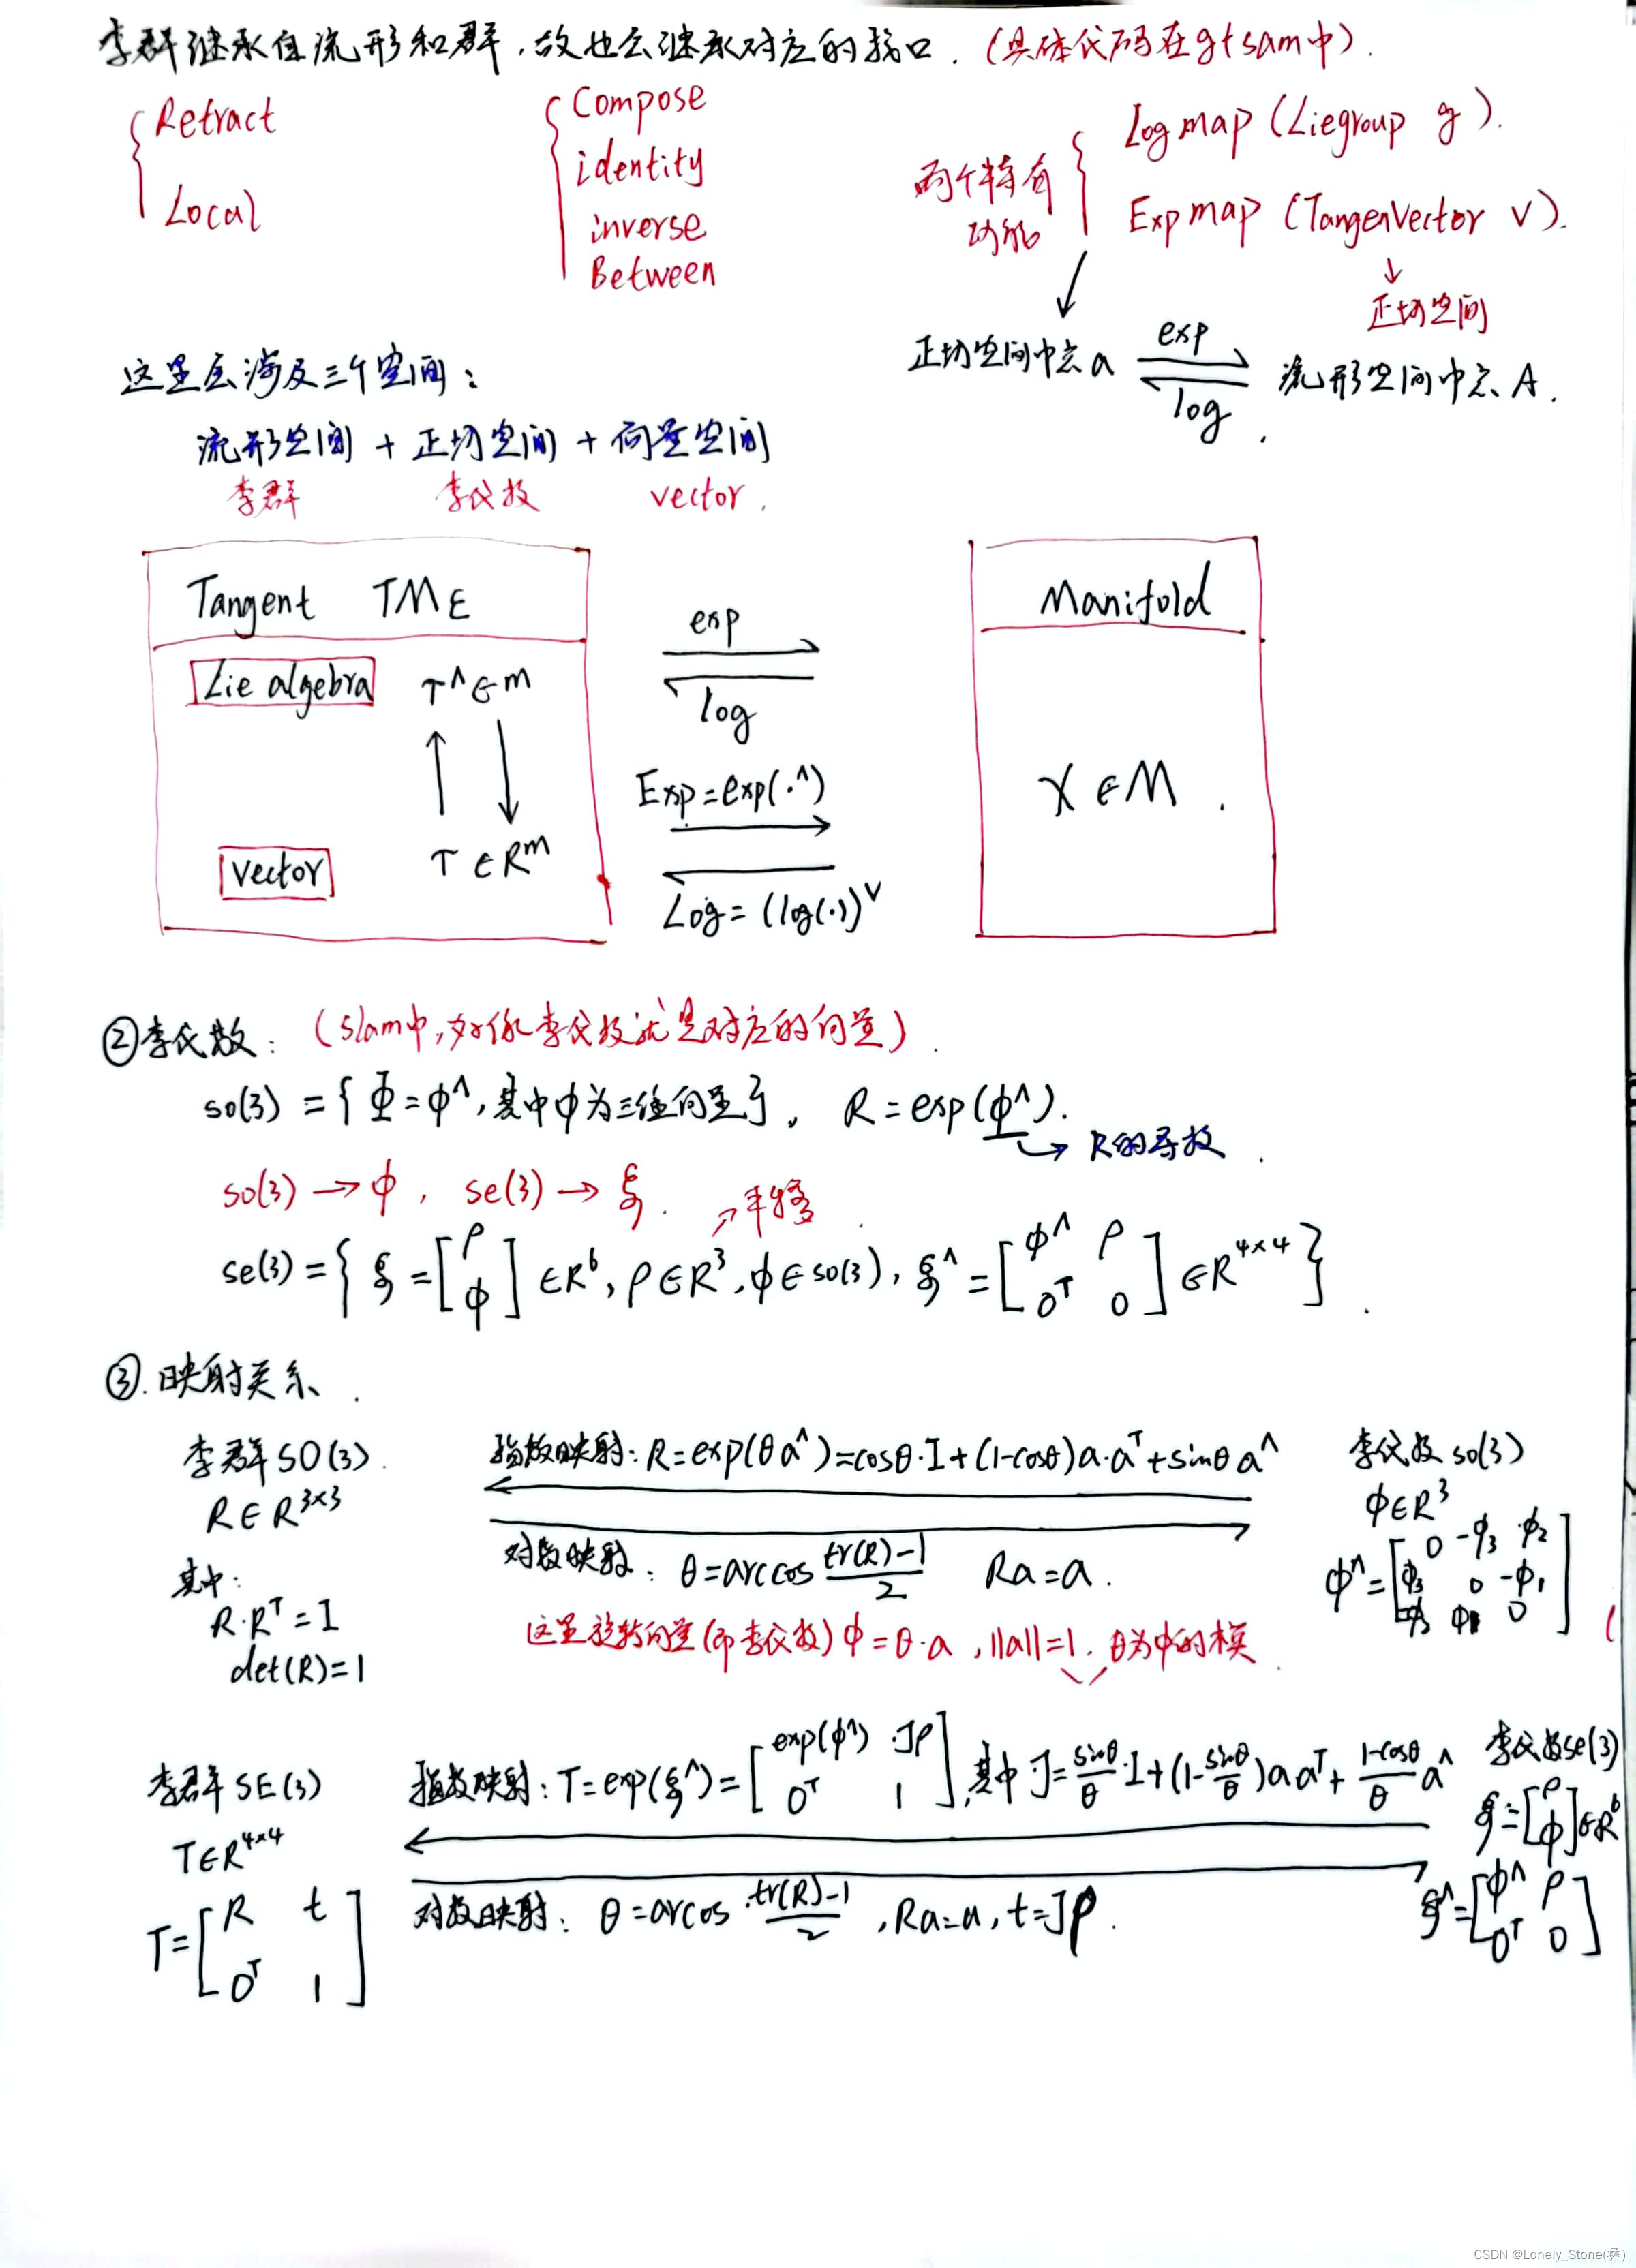 李群继承自流形和群，故也会继承对应的接口．（具体代码在gtsam中）．
Retract
Local
Compose
identity
inverse
Between
两个特有功能
Logmap (Liegroup g).
Expmap (TangenVector V).
正切空间
正切空间中点 a exp log 流形空间中点 A.
这里会涉及三个空间：
流形空间 + 正切空间 + 向量空间
李群 李代数 vector.
Tangent TMε
Lie algebra τ^∈m
vector τ∈R^m
exp
log
Exp=exp(·^)
Log=(log(·))^∨
Manifold
X∈M.
②李代数：（slam中,好像李代数就是对应的向量）.
so(3)={Φ=φ^,其中φ为三维向量}，R=exp(φ^).
→R的导数.
so(3)→φ，se(3)→ξ.
↗平移.
se(3)={ξ=[ρ φ]∈R^6, ρ∈R^3, φ∈so(3), ξ^=[φ^ ρ 0^T 0]∈R^{4×4}}.
③.映射关系.
李群SO(3).
R∈R^{3×3}
其中:
R·R^T=I
det(R)=1
指数映射：R=exp(θa^)=cosθ·I+(1-cosθ)a·a^T+sinθa^
对数映射：θ=arccos (tr(R)-1)/2 Ra=a.
这里旋转向量(即李代数)φ=θ·a，||a||=1．θ为φ的模
李代数so(3)
φ∈R^3
φ^=[0 -φ3 φ2 φ3 0 -φ1 -φ3 φ1 0]
李群SE(3)
T∈R^{4×4}
T=[R t 0^T 1]
指数映射：T=exp(ξ^)=[exp(φ^) Jρ 0^T 1],其中J=sinθ/θ·I+(1-sinθ/θ)aa^T+(1-cosθ)/θ a^
对数映射：θ=arcos (tr(R)-1)/2, Ra=a, t=Jρ.
李代数se(3)
ξ=[ρ φ]∈R^6
ξ^=[φ^ ρ 0^T 0]
CSDN @Lonely_Stone(彝)